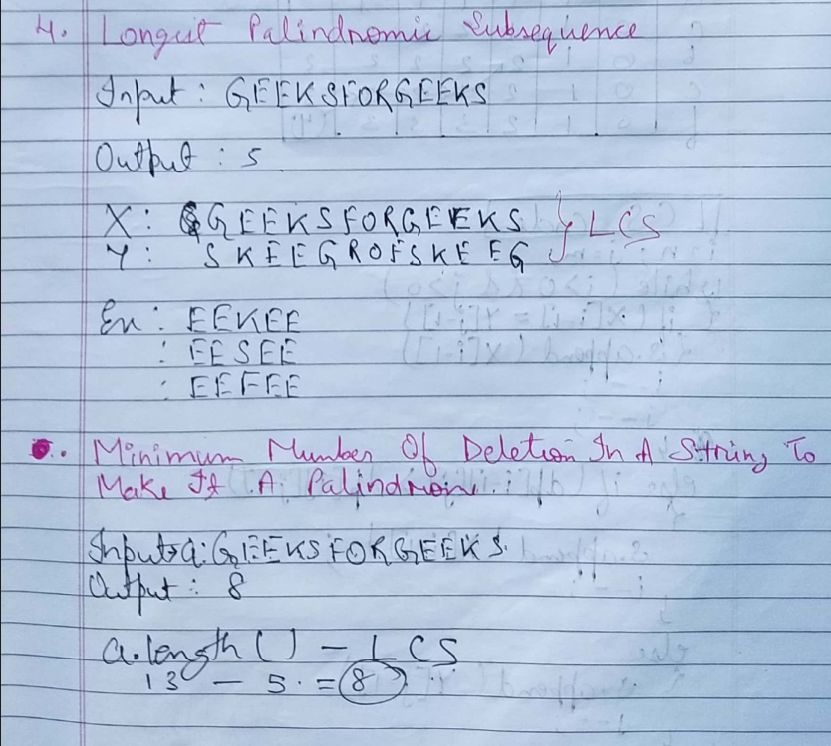 4. Longest Palindromic Subsequence
Input : GEEKSFORGEEKS
Output : 5
X : GEEKSFORGEEKS } LCS
Y : SKEEGROFSKEEG
Ex : EEKEE
: EESEE
: EEFEE
5. Minimum Number Of Deletion In A String To
Make It A Palindrom.
Input→a: GEEKSFORGEEKS.
Output : 8
a.length() - LCS
13 - 5. = 8